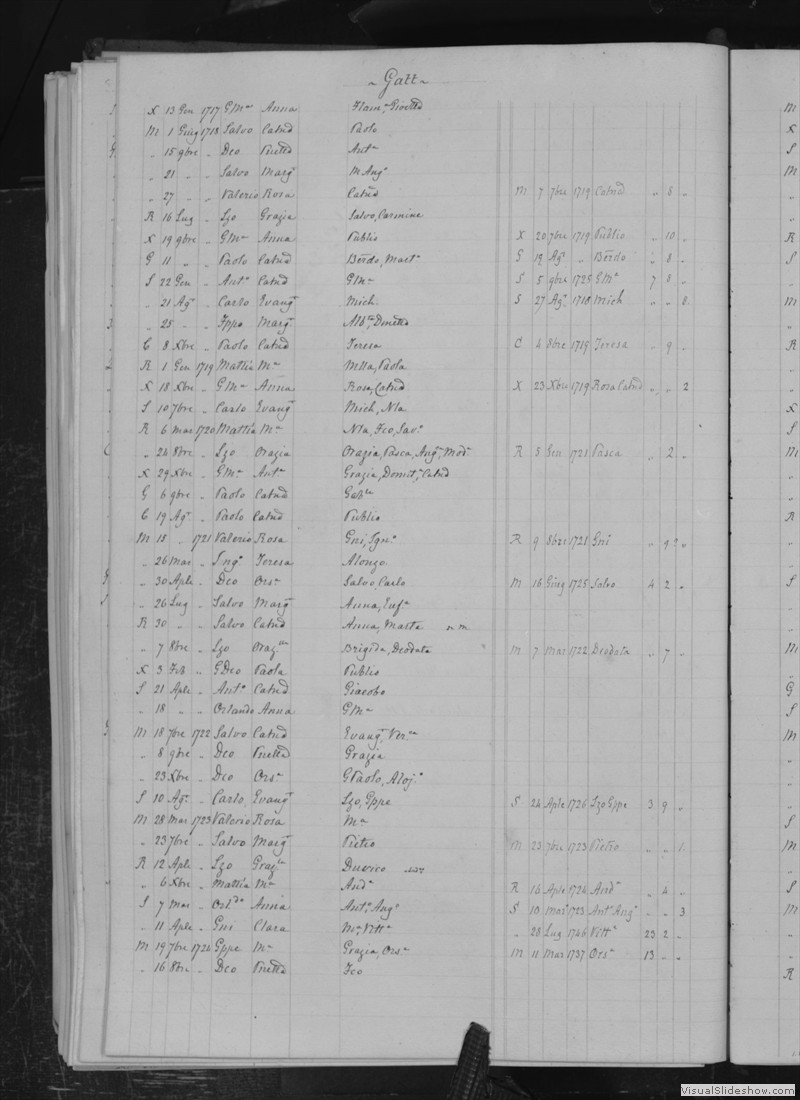 ~ Gatt ~
X 13 Gen 1717 GMa Anna
M 1 Giug 1718 Salvo Catnd Paolo
„ 15 9bre „ Deo Antª
„ 21 „ „ Salvo Margª M Angª
„ 27 „ „ Valerio Rosa Catnd M 7 7bre 1719 Catnd „ 8 „
R 16 Lug „ Lzo Grazia Salvo, Carmine
X 19 9bre „ GMa Anna Publio X 20 7bre 1719 Publio „ 10 „
G 11 „ „ Paolo Catnd Berdo, Martª G 19 Agº „ Berdo „ 8 „
S 22 Gen „ Antº Catnd GMa S 5 9bre 1725 GMa 7 8 „
„ 21 Agº „ Carlo Evangª Mich S 27 Agº 1718 Mich „ „ 8
„ 25 „ „ Margª
C 8 Xbre „ Paolo Catnd Teresa C 4 8bre 1719 Teresa „ 9 „
R 1 Gen 1719 Mattia Mª Paola
X 18 Xbre „ GMa Anna Rosa, Catnd X 23 Xbre 1719 Rosa Catnd „ „ 2
S 10 7bre „ Carlo Evangª Mich, Nla
R 6 Mar 1720 Mattia Mª Nla, Fco, Savº
„ 24 8bre „ Lzo Orazia Orazia, Pasca, Angª, Modª R 5 Gen 1721 Pasca „ 2 „
X 29 Xbre „ GMa Antª Grazia, Domitª, Catnd
G 6 9bre „ Paolo Catnd
C 19 Agº „ Paolo Catnd Publio
M 18 „ 1721 Valerio Rosa Gni, Ignº R 9 8bre 1721 Gni „ 9? „
„ 26 Mar „ Ingº Teresa Alonzo
„ 30 Aple „ Deo Orsª Salvo, Carlo M 16 Giug 1725 Salvo 4 2 „
„ 26 Lug „ Salvo Margª Anna, Eufª
R 30 „ „ Salvo Catnd Anna, Marta
„ 7 8bre „ Lzo Brigida, Deodata M 7 Mar 1722 Deodata „ 7 „
X 3 Feb „ GDeo Paola Publio
S 21 Aple „ Antº Catnd Giacobo
„ 18 „ „ Orlando Anna GMa
M 18 7bre 1722 Salvo Catnd Evangª, Verª
„ 8 9bre „ Deo Grazia
„ 23 Xbre „ Deo Orsª GPaolo, Alojº
S 10 Agº „ Carlo, Evangª Lzo, Gppe S 24 Aple 1726 Lzo Gppe 3 9 „
M 28 Mar 1723 Valerio Rosa Mª
„ 23 7bre „ Salvo Margª Pietro M 23 7bre 1723 Pietro „ „ 1
R 12 Aple „ Lzo
„ 6 Xbre „ Mattia Mª Andª R 16 Aple 1724 Andª „ 4 „
S 7 Mar „ Orldo Anna Antº, Angº S 10 Mar 1723 Antº Angº „ „ 3
„ 11 Aple „ Gni Clara Mª Vittª „ 28 Lug 1746 Vittª 23 2 „
M 19 7bre 1724 Gppe Mª Grazia, Orsª M 11 Mar 1737 Orsª 13 „ „
„ 16 8bre „ Deo Fco
VisualSlideshow.com